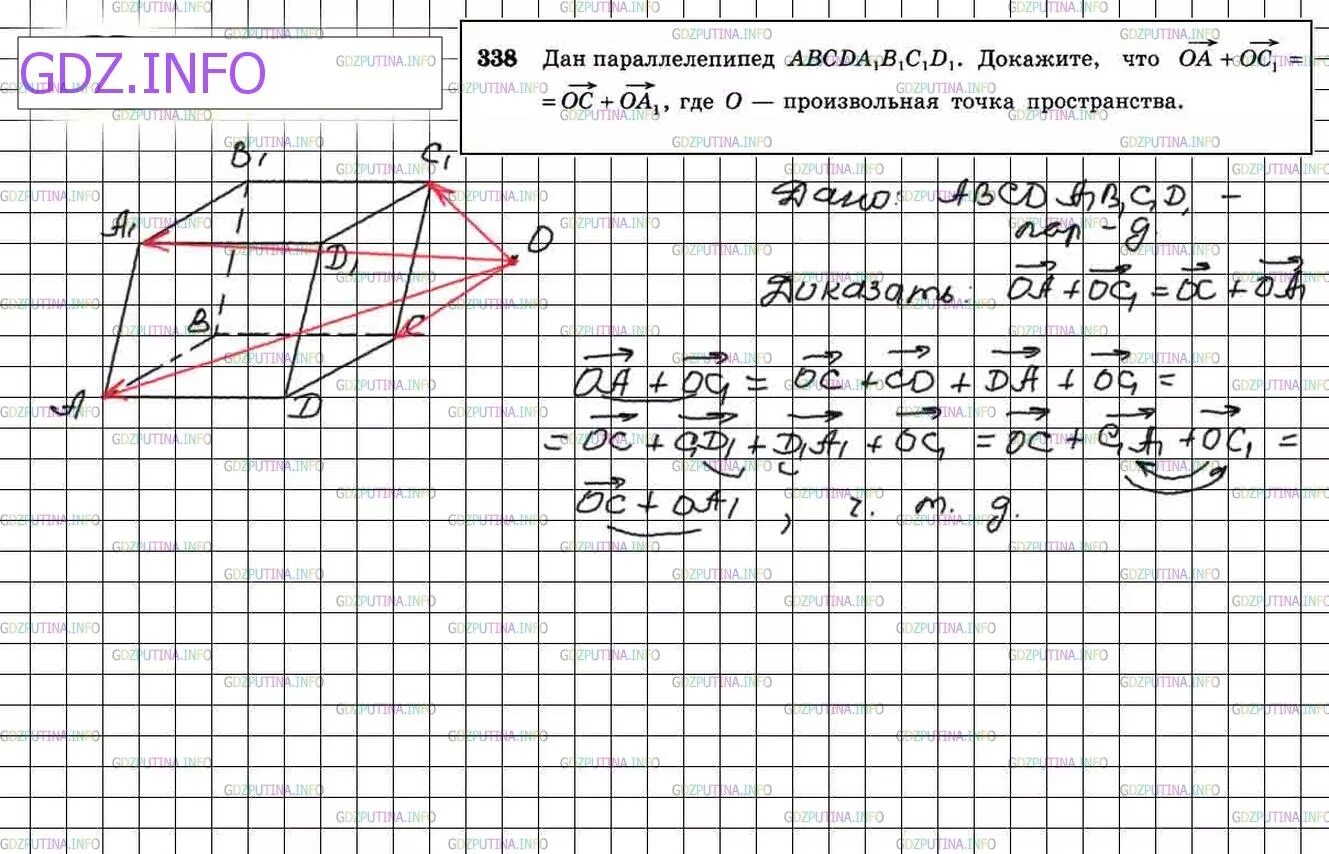 GDZ.INFO
338 Дан параллелепипед ABCDA₁B₁C₁D₁. Докажите, что OA + OC₁ =
= OC + OA₁, где O — произвольная точка пространства.
B₁ C₁
A₁ D₁ O
B C
A D
Дано: ABCDA₁B₁C₁D₁ –
пар-д.
Доказать: OA + OC₁ = OC + OA₁
OA + OC₁ = OC + CD + DA + OC₁ =
= OC + C₁D₁ + D₁A₁ + OC₁ = OC + C₁A₁ + OC₁ =
OC + OA₁, ч. т. д.
GDZPUTINA.INFO